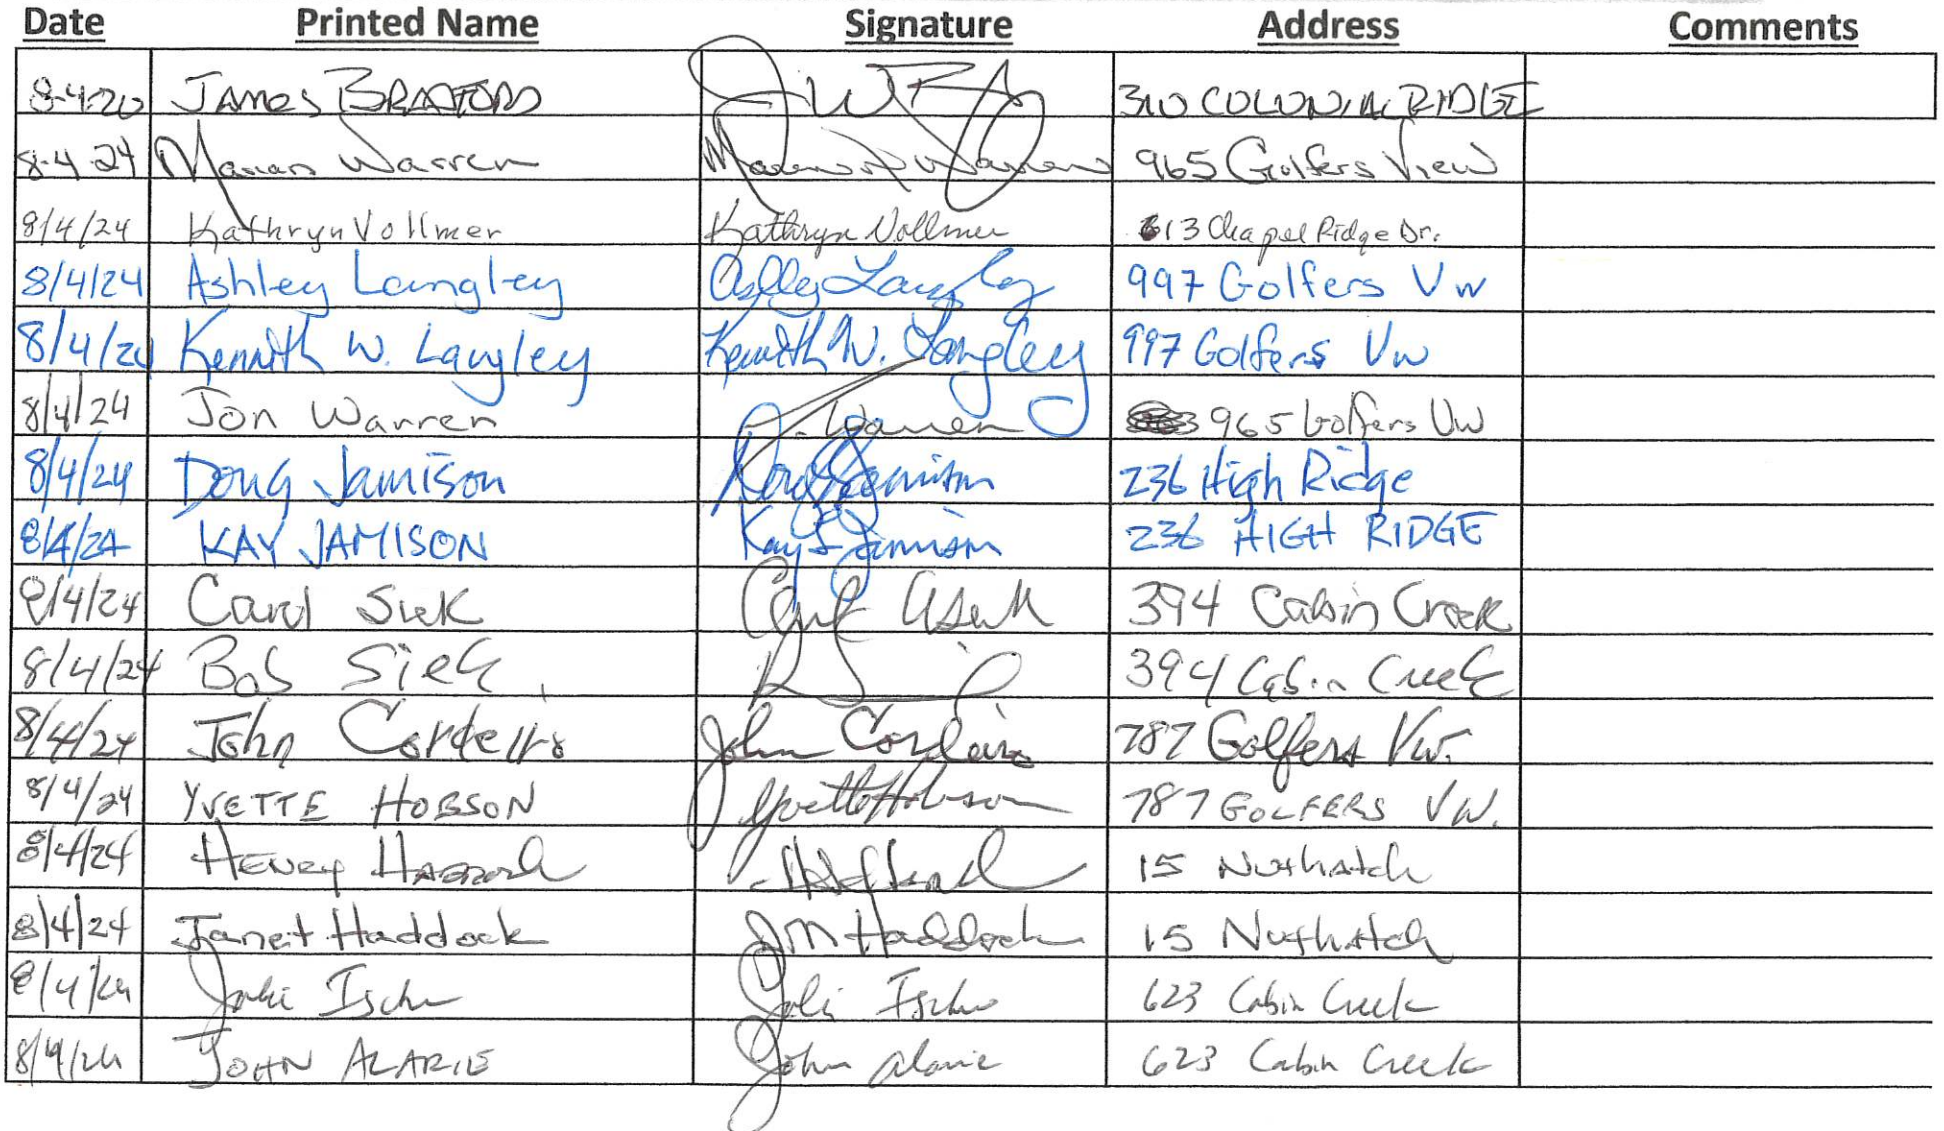 Date Printed Name Signature Address Comments
8-4-20 JAMES BRAFFORD 310 COLONIAL RIDGE
8-4-24 Marian Warren Warren 965 Golfers View
8/4/24 Kathryn Vollmer Kathryn Vollmer 613 Chapel Ridge Dr.
8/4/24 Ashley Langley Ashley Langley 997 Golfers Vw
8/4/24 Kennith W. Langley Kennith W. Langley 997 Golfers Vw
8/4/24 Jon Warren J. Warren 965 Golfers Vw
8/4/24 Doug Jamison Doug Jamison 236 High Ridge
8/4/24 KAY JAMISON Kay Jamison 236 HIGH RIDGE
8/4/24 Carol Siek 394 Cabin Creek
8/4/24 Bob Siek 394 Cabin Creek
8/4/24 John Cordeiro John Cordeiro 787 Golfers Vw.
8/4/24 YVETTE HOBSON Yvette Hobson 787 GOLFERS VW.
8/4/24 HENRY HADDOCK 15 Nuthatch
8/4/24 Janet Haddock JM Haddock 15 Nuthatch
8/4/24 623 Cabin Creek
8/4/24 JOHN ALARIE John Alarie 623 Cabin Creek